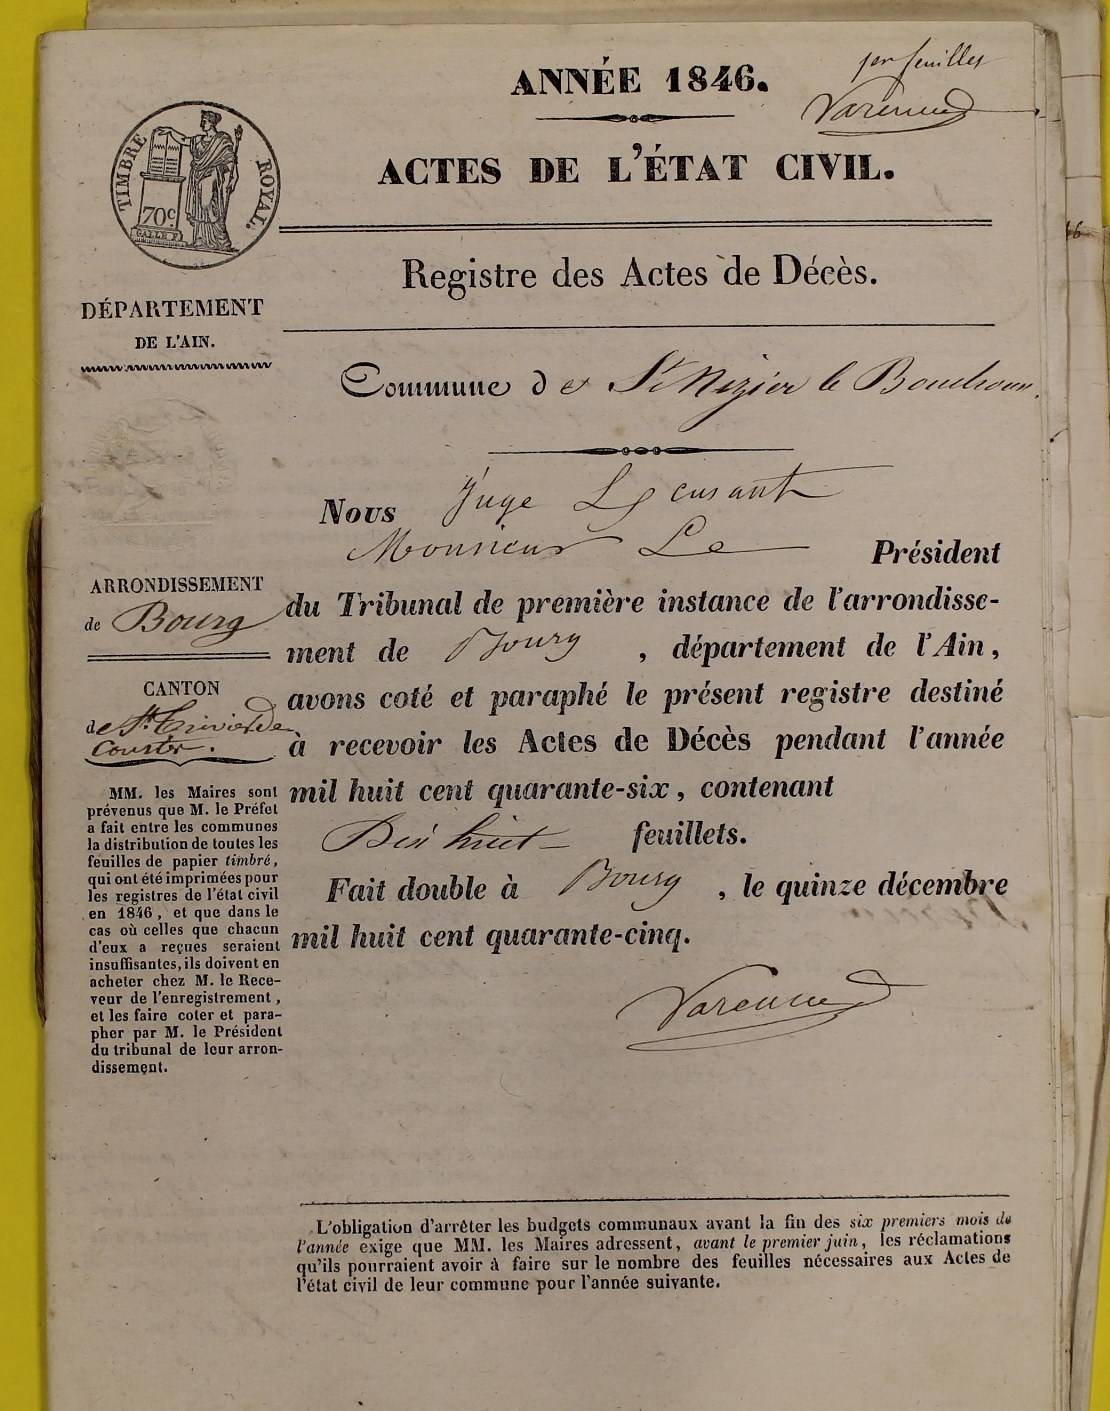 1er feuillet
Varenne
ANNÉE 1846.
ACTES DE L'ÉTAT CIVIL.
TIMBRE ROYAL.
70c
GALLE F.
DÉPARTEMENT
DE L'AIN.
Registre des Actes de Décès.
Commune de St Nizier le Bouchoux.
ARRONDISSEMENT
de Bourg
CANTON
de St. Trivier de
Courtes.
MM. les Maires sont
prévenus que M. le Préfet
a fait entre les communes
la distribution de toutes les
feuilles de papier timbré,
qui ont été imprimées pour
les registres de l'état civil
en 1846, et que dans le
cas où celles que chacun
d'eux a reçues seraient
insuffisantes, ils doivent en
acheter chez M. le Rece-
veur de l'enregistrement,
et les faire coter et para-
pher par M. le Président
du tribunal de leur arron-
dissement.
Nous Juge
Monsieur Le Président
du Tribunal de première instance de l'arrondisse-
ment de Bourg, département de l'Ain,
avons coté et paraphé le présent registre destiné
à recevoir les Actes de Décès pendant l'année
mil huit cent quarante-six, contenant
Dix huit feuillets.
Fait double à Bourg, le quinze décembre
mil huit cent quarante-cinq.
Varenne
L'obligation d'arrêter les budgets communaux avant la fin des six premiers mois de
l'année exige que MM. les Maires adressent, avant le premier juin, les réclamations
qu'ils pourraient avoir à faire sur le nombre des feuilles nécessaires aux Actes de
l'état civil de leur commune pour l'année suivante.